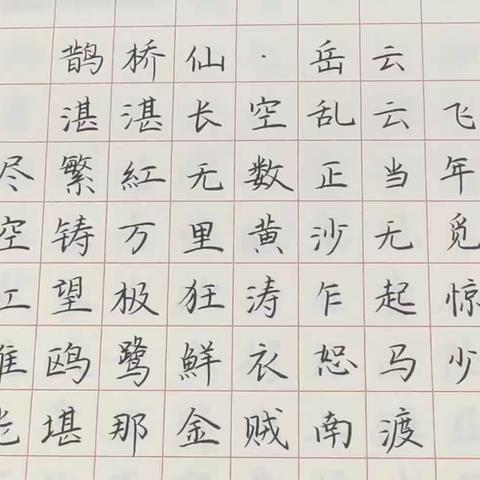 鹊桥仙·岳云
湛湛长空乱云飞
尽繁红无数正当年
空铸万里黄沙无觅
江望极狂涛乍起惊
鸥鹭鲜衣恕马少
堪那金贼南渡